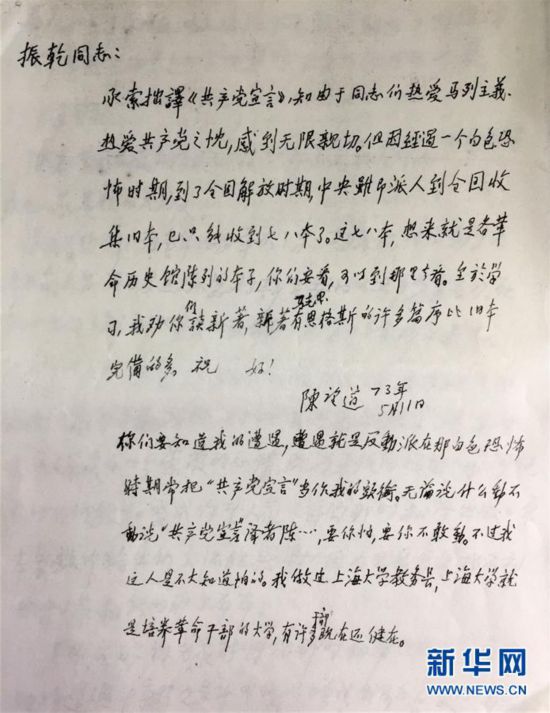 振乾同志：
承索拙譯《共产党宣言》，知由于同志们热爱马列主义、
热爱共产党之忱，感到无限親切。但因经過一个白色恐
怖时期，到了全国解放时期，中央雖下派人到全国收
集旧本，已只能收到七八本了。这七八本，想来就是各革
命历史館陈列的本子，你们要看，可以到那里去看。至於学
习，我劝你们讀新著，新著有马克思恩格斯的许多篇序比旧本
完備的多。祝 好！
陳望道 73年
5月11日
你们要知道我的遭遇，遭遇就是反動派在那白色恐怖
時期常把“共产党宣言”当作我的頭銜。无論说什么動不
動说“共产党宣言譯者陈…，要你怕，要你不敢動。不过我
这人是不大知道怕的。我做过上海大学教务長，上海大学就
是培养革命干部的大学，有许多干部现在还健在。
新华网
WWW.NEWS.CN